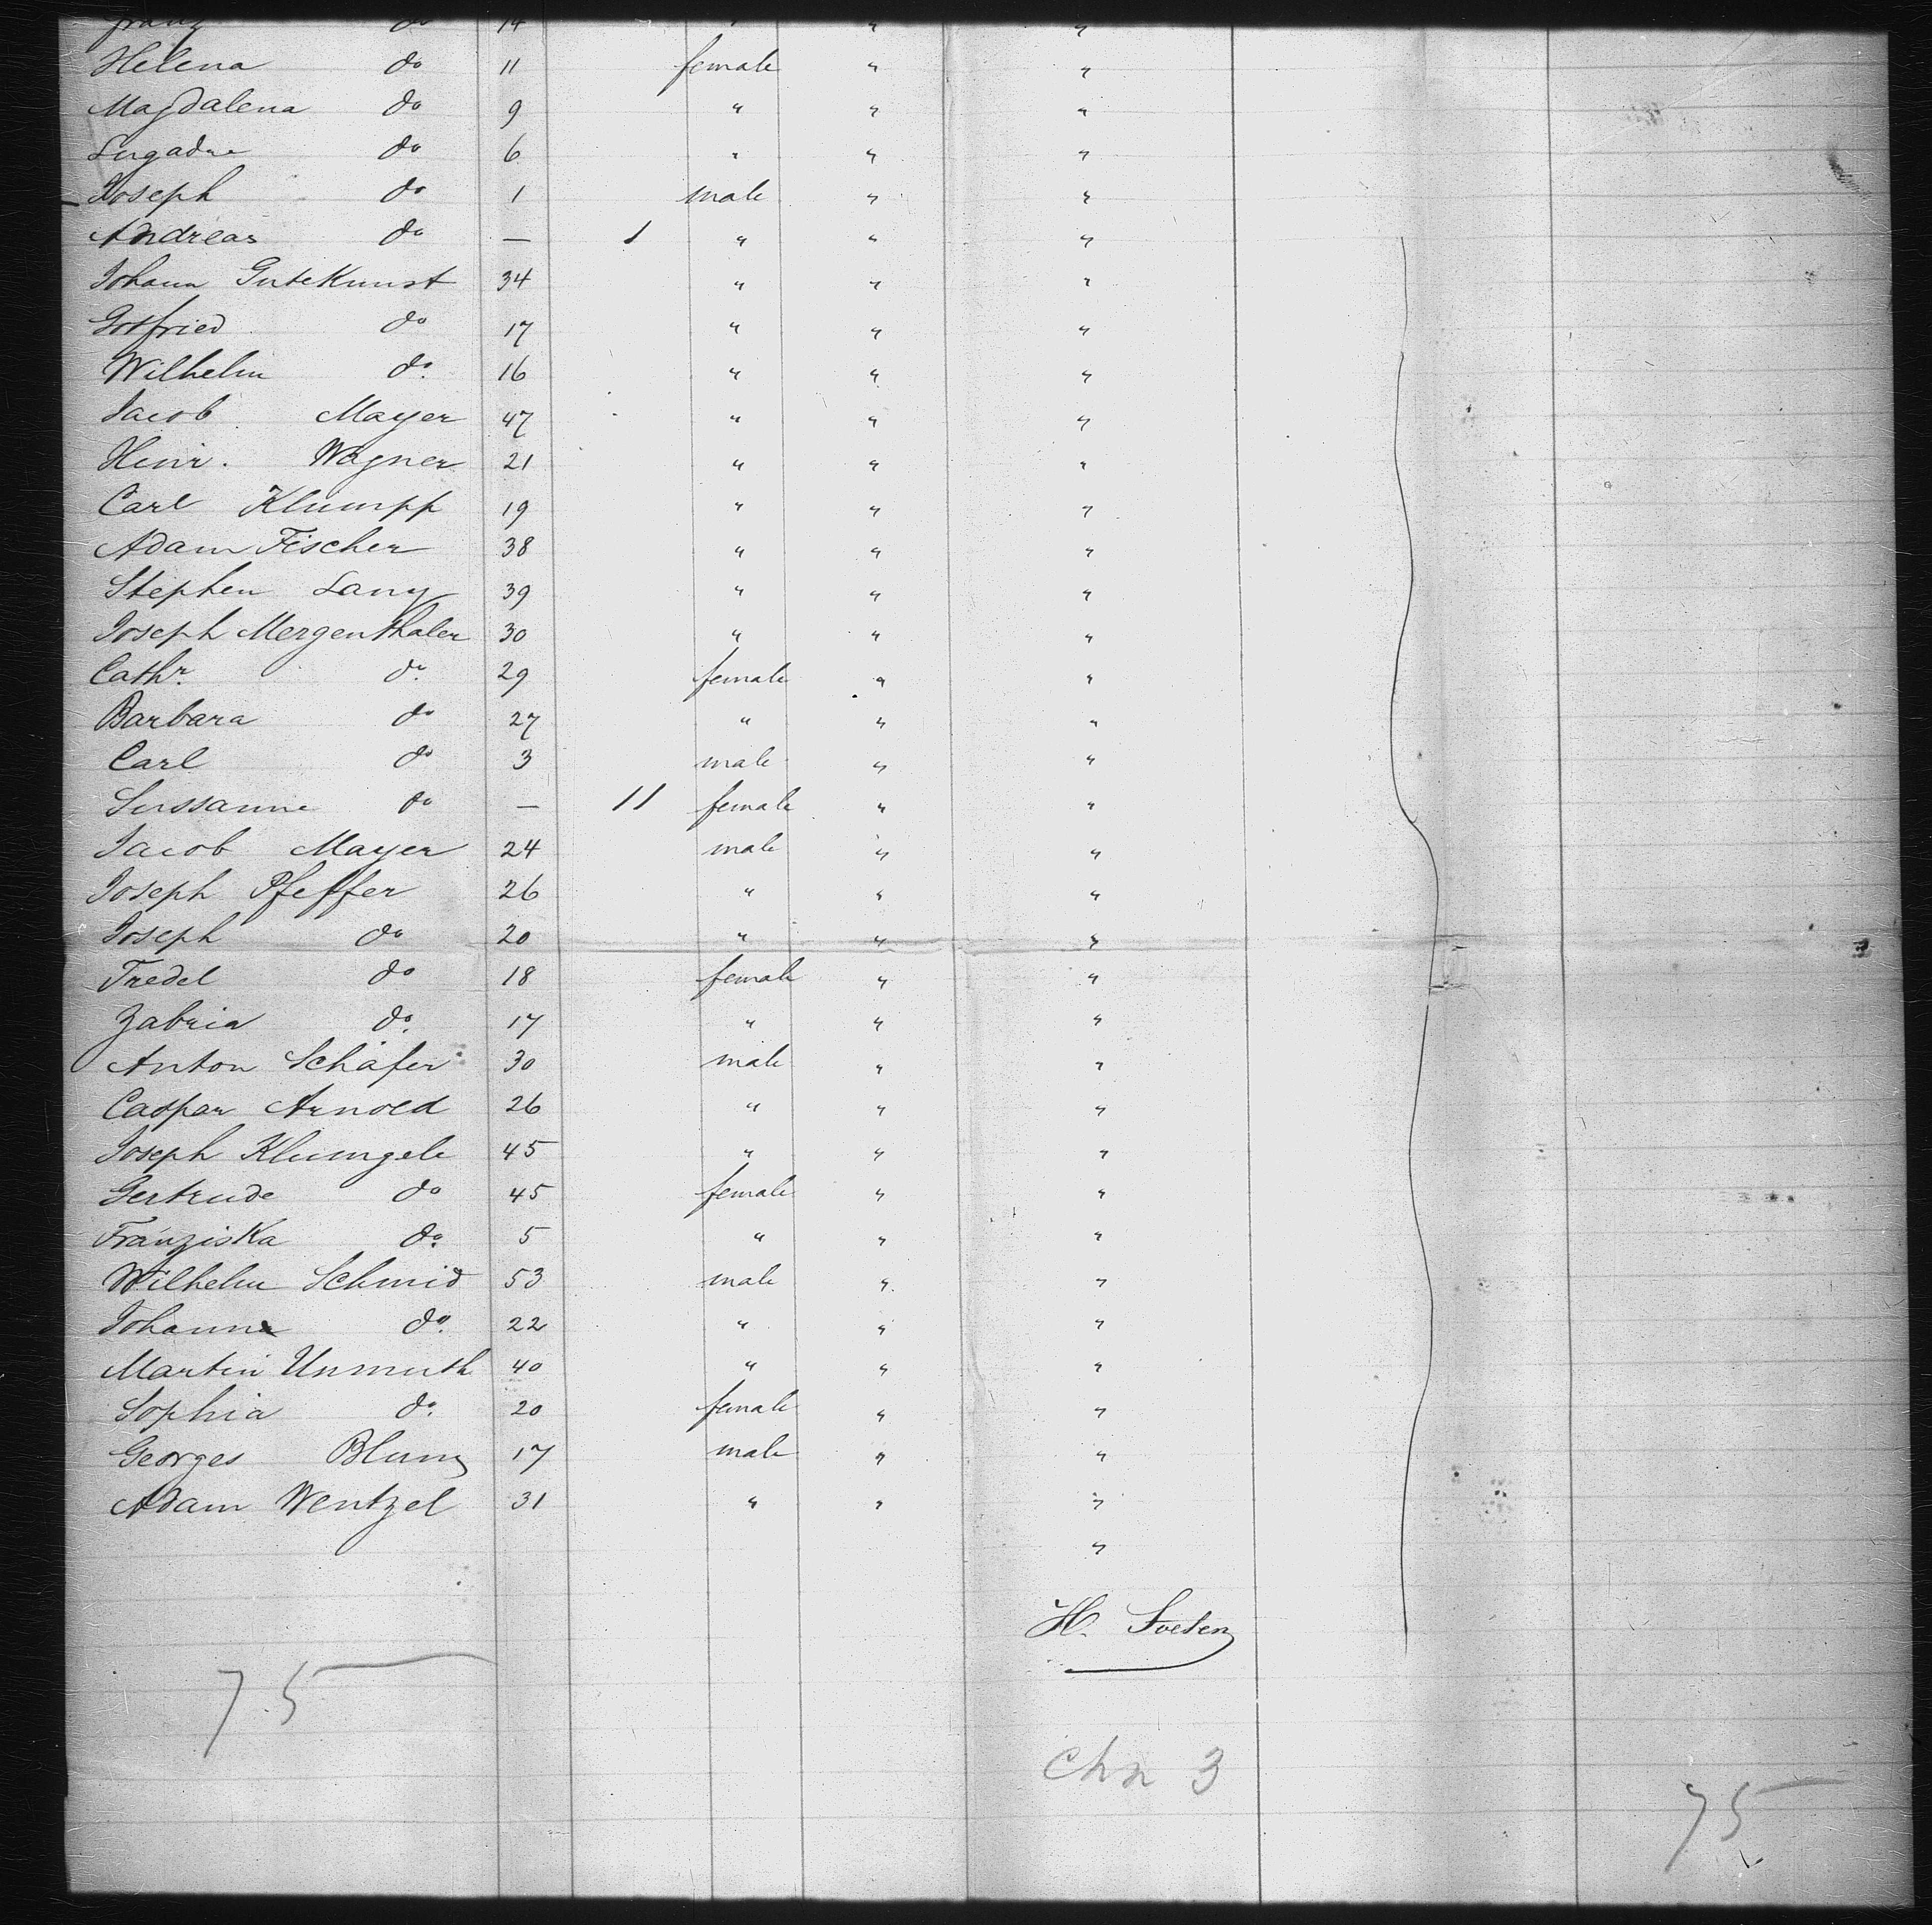 Franz do 14 " " "
Helena do 11 female " "
Magdalena do 9 " " "
do 6 " " "
Joseph do 1 male " "
Andreas do — 1 " " "
Johann Gutekunst 34 " " "
Gotfried do 17 " " "
Wilhelm do. 16 " " "
Jacob Mayer 47 " " "
Heinr. Wagner 21 " " "
Carl Klumpp 19 " " "
Adam Fischer 38 " " "
Stephen Lany 39 " " "
Joseph Mergenthaler 30 " " "
Cathr. do. 29 female " "
Barbara do 27 " " "
Carl do 3 male " "
Sussanne do — 11 female " "
Jacob Mayer 24 male " "
Joseph Pfeffer 26 " " "
Joseph do 20 " " "
Fredel do 18 female " "
Zabria do. 17 " " "
Anton Schäfer 30 male " "
Caspar Arnold 26 " " "
Joseph Klumgele 45 " " "
Gertrude do 45 female " "
Franziska do. 5 " " "
Wilhelm Schmid 53 male " "
Johann do. 22 " " "
Martin Unmuth 40 " " "
Sophia do. 20 female " "
Georges Blum 17 male " "
Adam Wentzel 31 " " "
"
H.
75
Chn 3
75